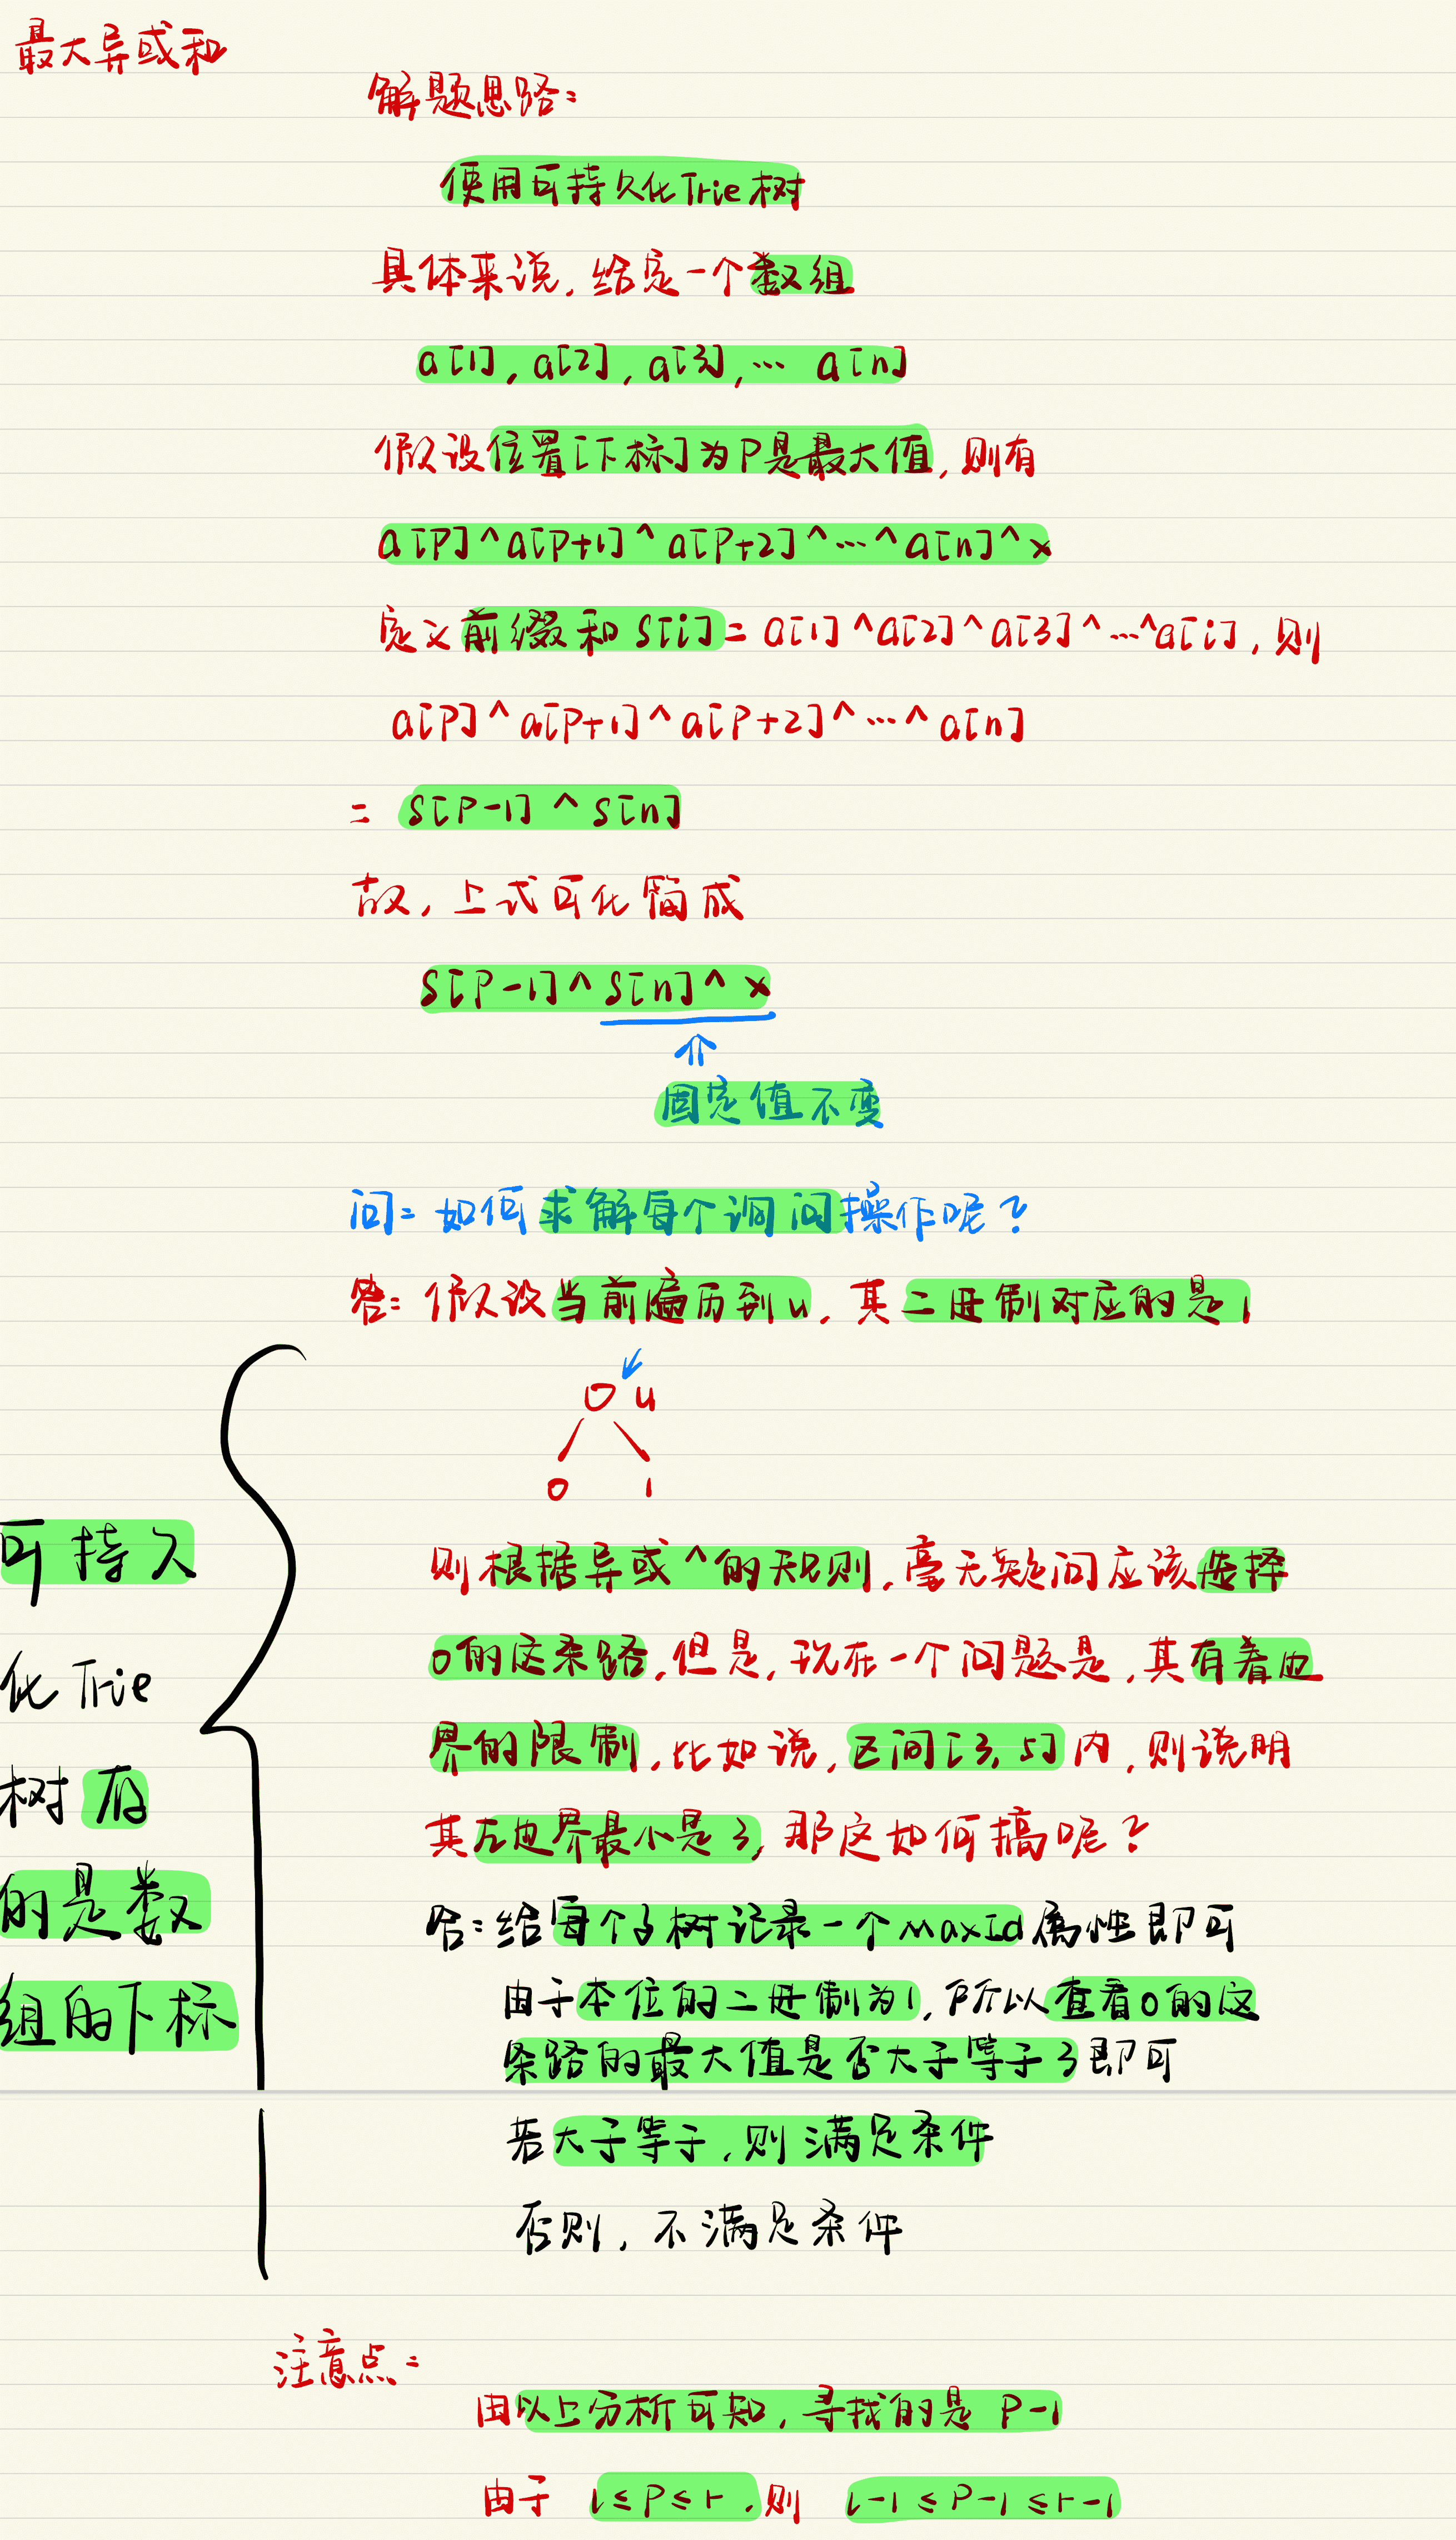 最大异或和
解题思路:
使用可持久化Trie树
具体来说,给定一个数组
a[1], a[2], a[3], … a[n]
假设位置[下标]为P是最大值,则有
a[P]^a[P+1]^a[P+2]^…^a[n]^x
定义前缀和S[i]=a[1]^a[2]^a[3]^…^a[i],则
a[P]^a[P+1]^a[P+2]^…^a[n]
= S[P-1]^S[n]
故,上式可化简成
S[P-1]^S[n]^x
固定值不变
问:如何求解每个询问操作呢?
答:假设当前遍历到u,其二进制对应的是1
O u
0 1
则根据异或^的规则,毫无疑问应该选择
0的这条路,但是,现在一个问题是,其有着边
界的限制,比如说,区间[3,5]内,则说明
其左边界最小是3,那这如何搞呢?
答:给每个子树记录一个maxId属性即可
由于本位的二进制为1,所以查看0的这
条路的最大值是否大于等于3即可
若大于等于,则满足条件
否则,不满足条件
可持久
化Trie
树存
的是数
组的下标
注意点:
由以上分析可知,寻找的是 P-1
由于 l≤P≤r,则 l-1≤P-1≤r-1